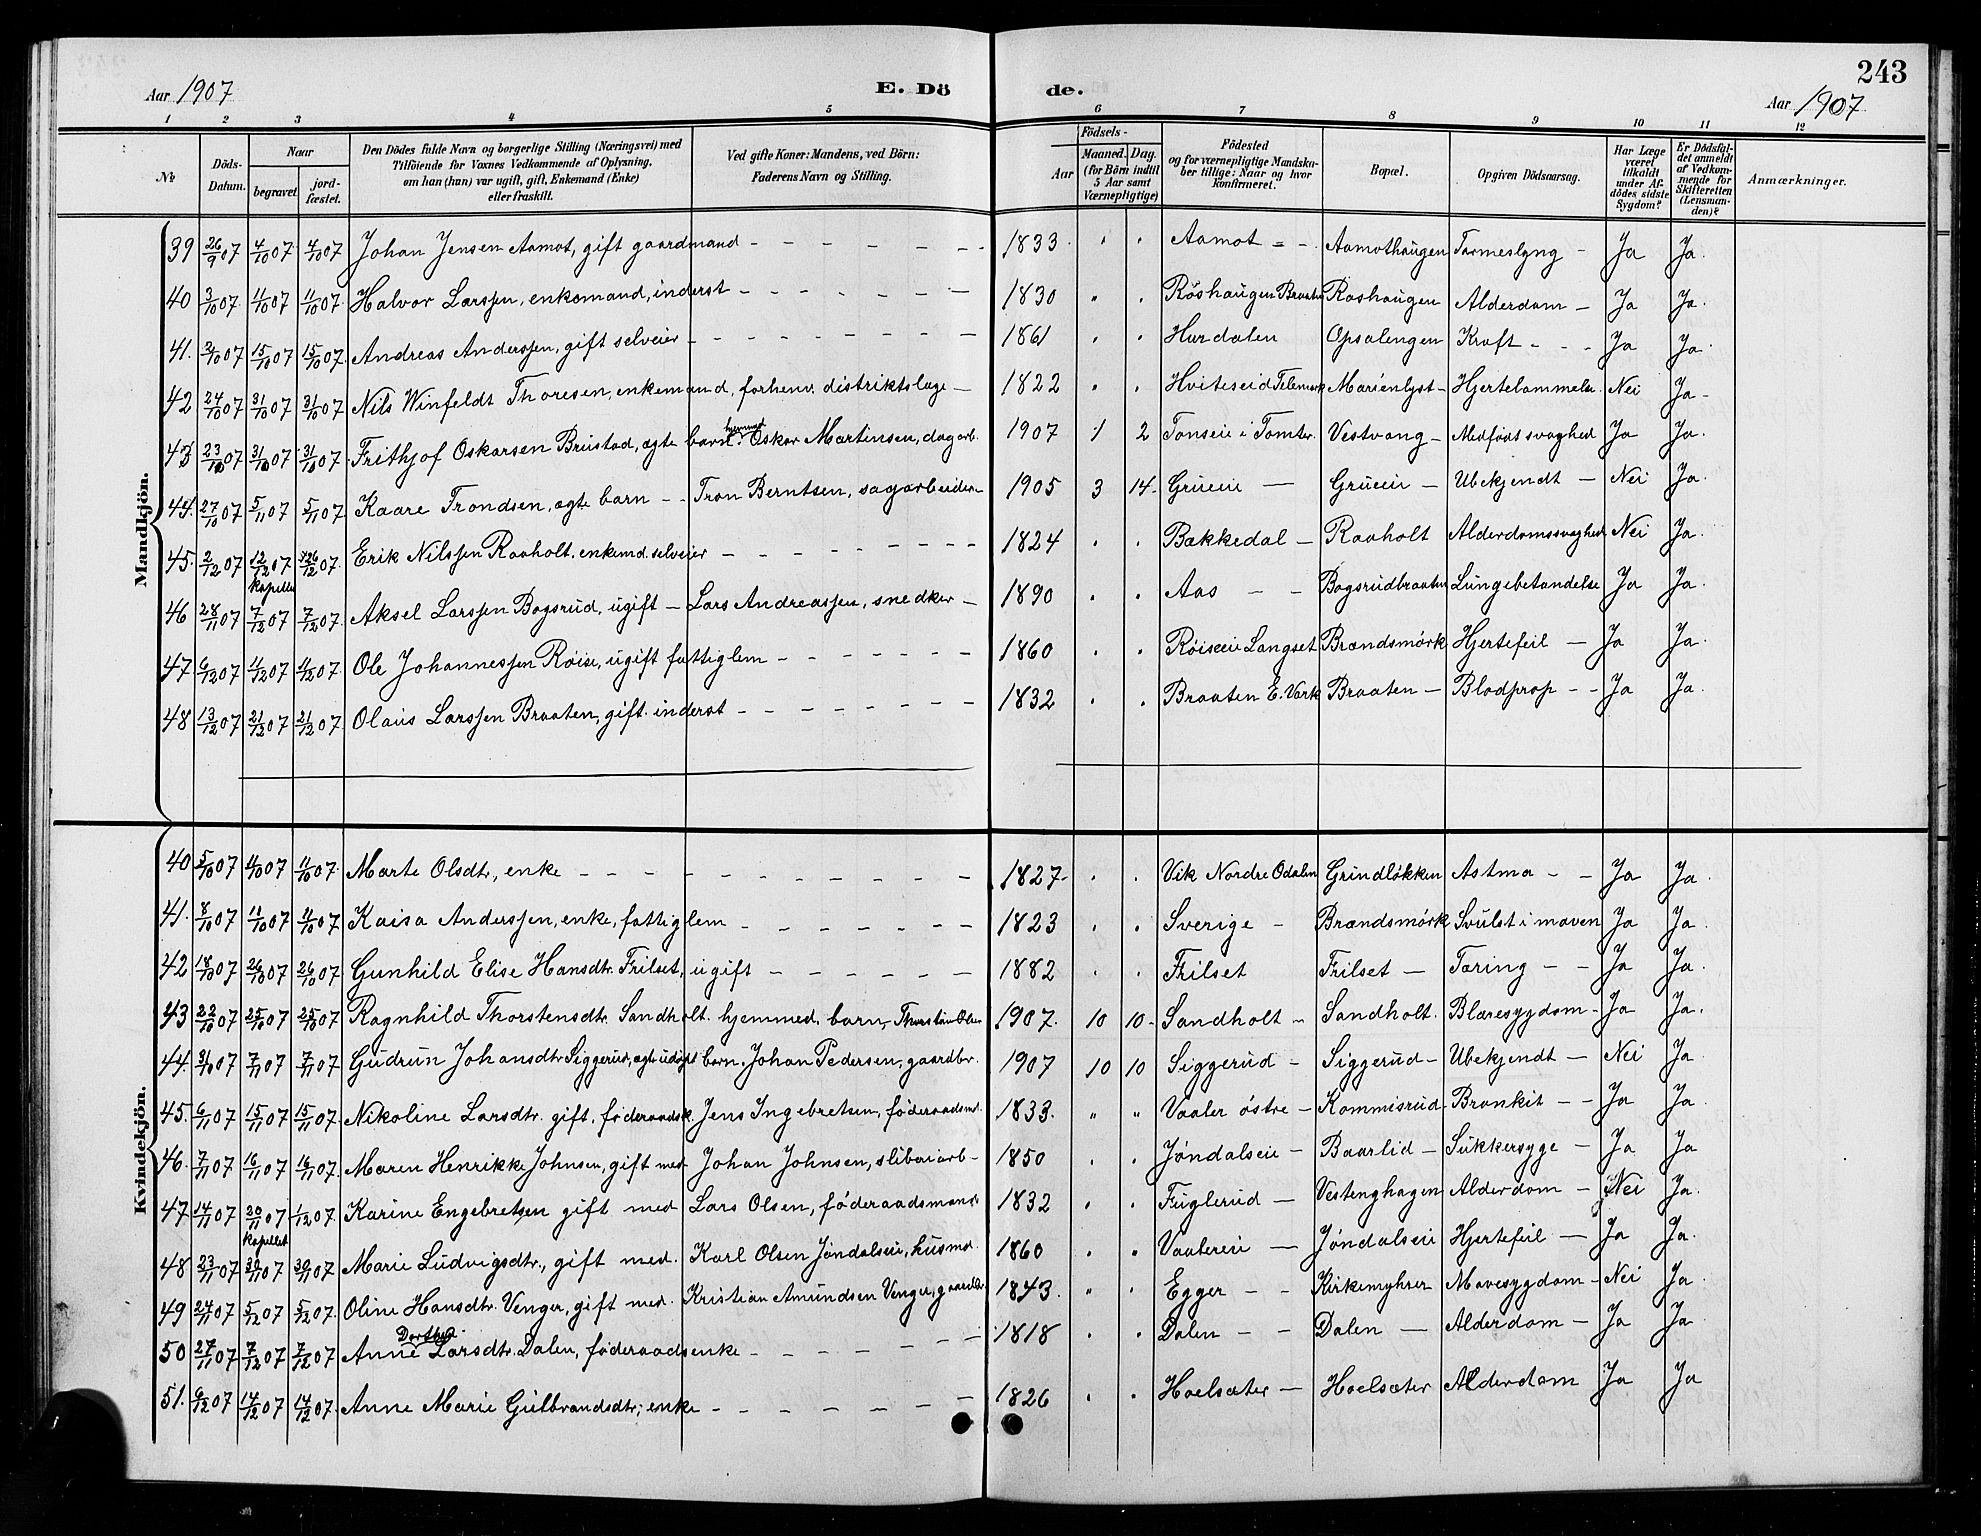 243
Aar 1907
E. Dö
de.
Aar 1907
1 2 3 4 5 6 7 8 9 10 11 12
№
Döds-Datum.
Naar
begravet.
jord-fæstet.
Den Dödes fulde Navn og borgerlige Stilling (Næringsvei) med
Tilföiende for Voxnes Vedkommende af Oplysning,
om han (hun) var ugift, gift, Enkemand (Enke)
eller fraskilt.
Ved gifte Koner: Mandens, ved Börn:
Faderens Navn og Stilling.
Födsels-
Aar
Maaned.
Dag.
(for Börn indtil
5 Aar samt
Værnepligtige)
Födested
og for værnepligtige Mandska-
ber tillige: Naar og hvor
konfirmeret.
Bopæl.
Opgiven Dödsaarsag.
Har Læge
været
tilkaldt
under Af-
dödes sidste
Sygdom?
Er Dödsfal-
det anmeldt
af Vedkom-
mende for
Skifteretten
(Lensman-
den)?
Anmærkninger.
Mandkjön.
39 26/9 07 4/10 07 4/10 07 Johan Jensen Aamot, gift gaardmand - - - 1833 " " Aamot - - Aamothaugen Tarmeslyng - Ja Ja.
40 3/10 07 11/10 07 11/10 07 Halvor Larssen, enkemand, inderst - - - 1830 " " Röshaugen Braaten Röshaugen Alderdom - Ja Ja.
41. 2/10 07 15/10 07 15/10 07. Andreas Anderssen, gift selveier - - - 1861 " " Hurdalen Opsalengen Kræft - - - Ja Ja.
42 24/10 07 31/10 07 31/10 07 Nils Winfeldt Thoresen, enkemand, forhenv. distriktslæge - 1822 " " Hviteseid Telemark Marienlyst - Hjertelammelse. Nei Ja -
43 23/10 07 31/10 07 31/10 07. Frithjof Oskarsen Breistad, ægte barn hjemmed. Oskar Martinsen, dagarb. 1907 1 2 Tonseie i Tomter. Vestvang - Medfødt svaghed Ja Ja.
44. 27/10 07 5/11 07 5/11 07 Kaare Trondsen, ægte barn - - Tron Berntsen, sagarbeider - 1905 3 14. Grueeie - Grueeie - Ubekjendt - Nei Ja.
45. 2/12 07 12/12 07 kapellet 26/12 07. Erik Nilssen Raaholt, enkemd. selveier - - - 1824 " " Bakkedal - Raaholt Alderdomssvaghed Nei Ja.
46 28/11 07 7/12 07 7/12 07. Aksel Larssen Bogsrud, ugift - Lars Andreassen, snedker - 1890 " " Aas - - Bogsrudbraaten Lungebetændelse Ja Ja.
47 6/12 07 11/12 07 11/12 07. Ole Johannessen Röise, ugift fattiglem - - - 1860 " " Röiseeie Langset Brændsmörk Hjertefeil - Ja Ja.
48 13/12 07 21/12 07 21/12 07. Olaus Larssen Braaten, gift. inderst - - - 1832 " " Braaten E. Værk Braaten - Blodprop - - Ja Ja.
Kvindekjön.
40 5/10 07 11/10 07 11/10 07. Marte Olsdtr., enke - - - 1827 - " " Vik Nordre Odalen Grindløkken Astma - - Ja Ja.
41. 8/10 07 11/10 07 11/10 07 Kaisa Anderssen, enke, fattiglem - - - 1823 " " Sverige - Brændsmörk Svulst i maven Ja Ja.
42 18/10 07 26/10 07 26/10 07 Gunhild Elise Hansdtr. Frilset, ugift - - - 1882 " " Frilset Frilset - Tæring - - Ja Ja.
43 22/10 07 25/10 07 25/10 07 Ragnhild Thorstensdtr. Sandholt. hjemmed. barn, Thorstein Olsen 1907. 10 10. Sandholt - Sandholt. Blæresygdom - Ja Ja.
44. 31/10 07 7/11 07 7/11 07 Gudrun Johansdtr Siggerud, ægte udöpt barn. Johan Pedersen, gaardbr. 1907 10 10 Siggerud - Siggerud - Ubekjendt - Nei Ja.
45. 6/11 07 15/11 07 15/11 07. Nikoline Larsdtr. gift, föderaadsk. Jens Ingebretsen, föderaadsmd. 1833. " " Vaaler østre - Kommisrud. Bronkit - - Ja Ja.
46. 7/11 07 16/11 07 16/11 07. Maren Henrikke Johnsen, gift med. Johan Johnsen, sliberiarb - 1850 " " Jøndalseie - Baarlid - Sukkersyge - Ja Ja
47 14/11 07 20/11 07 kapellet 1/12 07. Karine Engebretsen gift med Lars Olsen, föderaadsmand. 1832 " " Fuglerud - Vestenghagen Alderdom - Nei Ja.
48 23/11 07 30/11 07 30/11 07 Marie Ludvigsdtr., gift med. Karl Olsen Jøndalseie, husmd. 1860 " " Vaalereie - Jøndalseie Hjertefeil - Ja Ja.
49 24/11 07 5/12 07 5/12 07 Oline Hansdtr. Venger, gift med. Kristian Amundsen Venger, gaardbr. 1843. " " Egger - - Kirkemyhrer Mavesygdom - Nei Ja.
50 27/11 07 7/12 07 7/12 07 Anne Dorthea Larsdtr. Dalen, föderaadsenke - - - 1818 " " Dalen - - Dalen - Alderdom - Ja Ja
51. 6/12 07 14/12 07 14/12 07. Anne Marie Gulbrandsdtr; enke - - - 1826 " " Hoelsæter - Hoelsæter Alderdom Ja Ja